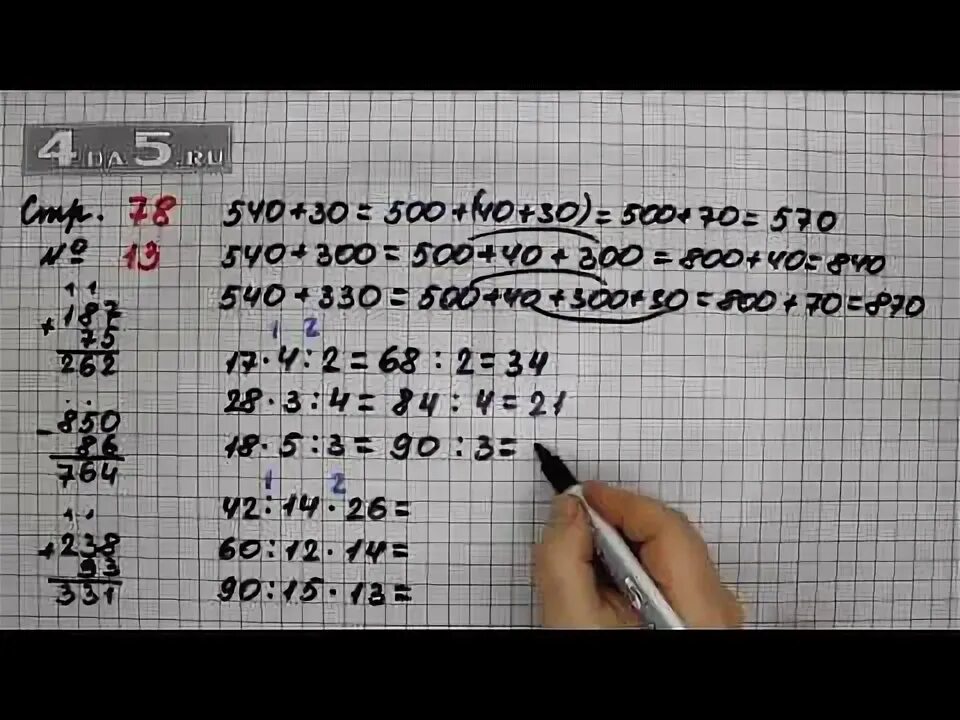 4НА5.RU
Стр. 78
№ 13
1 1
+187
75
262
. .
-850
86
764
1 1
+238
93
331
540+30=500+(40+30)=500+70=570
540+300=500+40+300=800+40=840
540+330=500+40+300+30=800+70=870
1 2
17·4:2=68:2=34
28·3:4=84:4=21
18·5:3=90:3=
1 2
42:14·26=
60:12·14=
90:15·13=